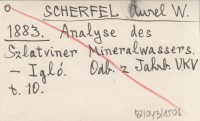 SCHERFEL Aurel W.
1883. Analyse des
Szlatviner Mineralwassers.
– Igló. Odb. z Jahrb. UKV
t. 10.